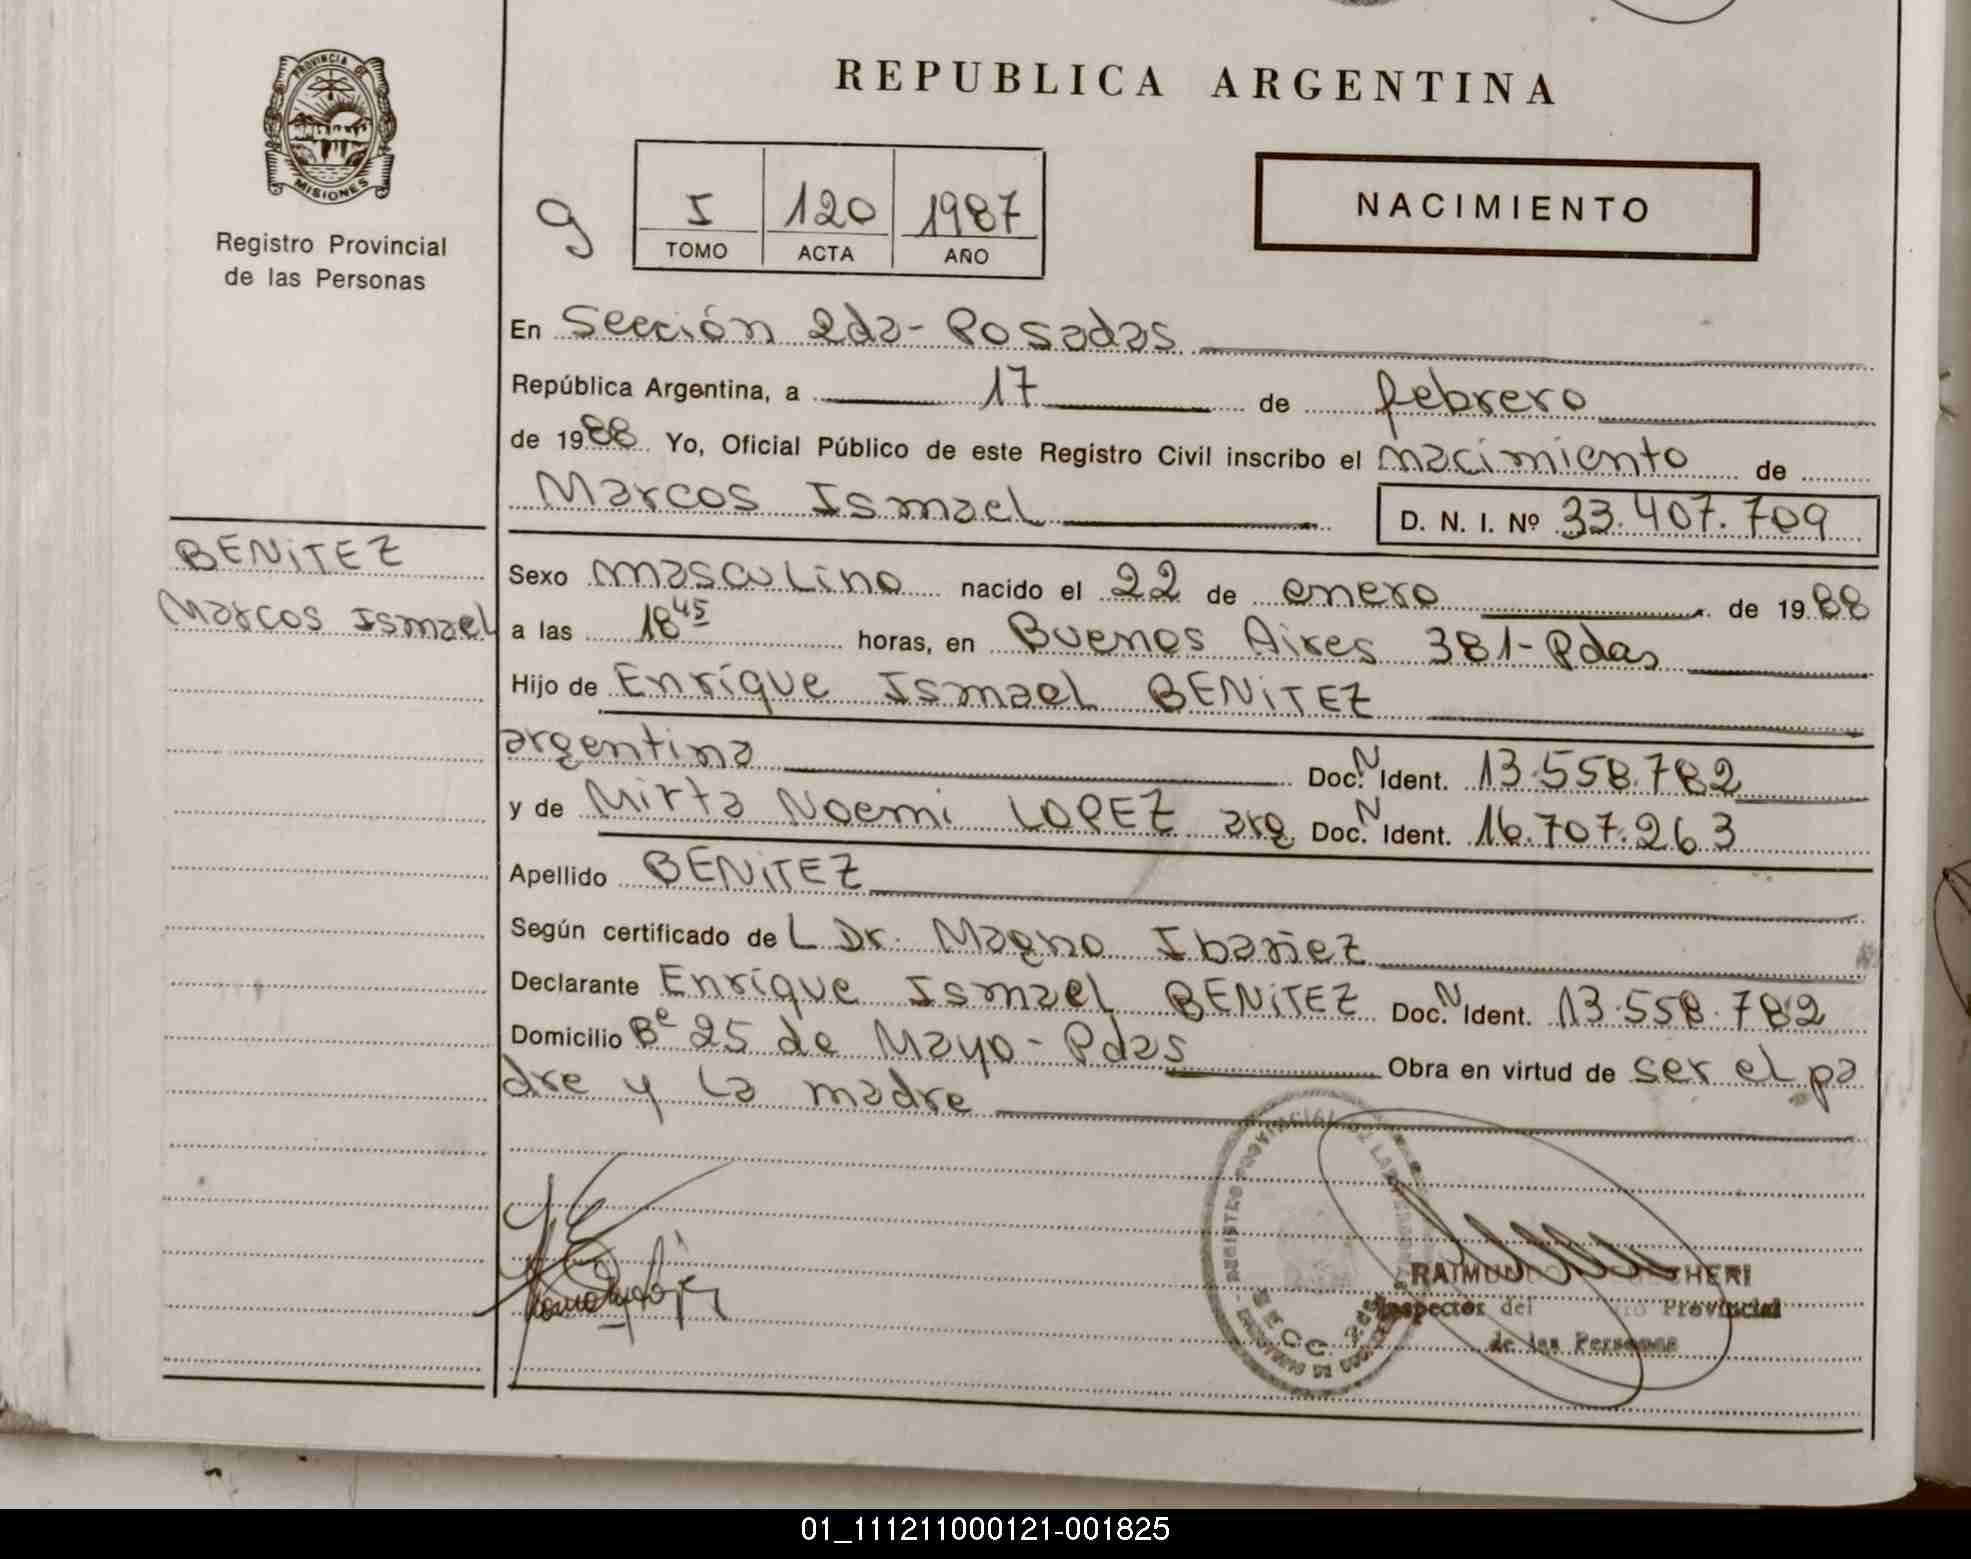 PROVINCIA DE
MISIONES
Registro Provincial
de las Personas
REPUBLICA ARGENTINA
9
I 120 1987
TOMO ACTA AÑO
NACIMIENTO
En Sección 2da - Posadas
República Argentina, a 17 de febrero
de 1988 Yo, Oficial Público de este Registro Civil inscribo el nacimiento de
Marcos Ismael D. N. I. Nº 33.407.709
BENITEZ
Marcos Ismael
Sexo masculino nacido el 22 de enero de 1988
a las 18 45 horas, en Buenos Aires 381 - Pdas
Hijo de Enrique Ismael BENITEZ
argentina Doc. N Ident. 13.558.782
y de Mirta Noemi LOPEZ arg. Doc. N Ident. 16.707.263
Apellido BENITEZ
Según certificado de L Dr. Magno Ibañez
Declarante Enrique Ismael BENITEZ Doc. N Ident. 13.558.782
Domicilio Bº 25 de Mayo - Pdas Obra en virtud de ser el pa
dre y la madre
REGISTRO PROVINCIAL DE LAS PERSONAS
SECC. 2da
RAIMUNDO
Inspector del Provincial
de las Personas
01_111211000121-001825